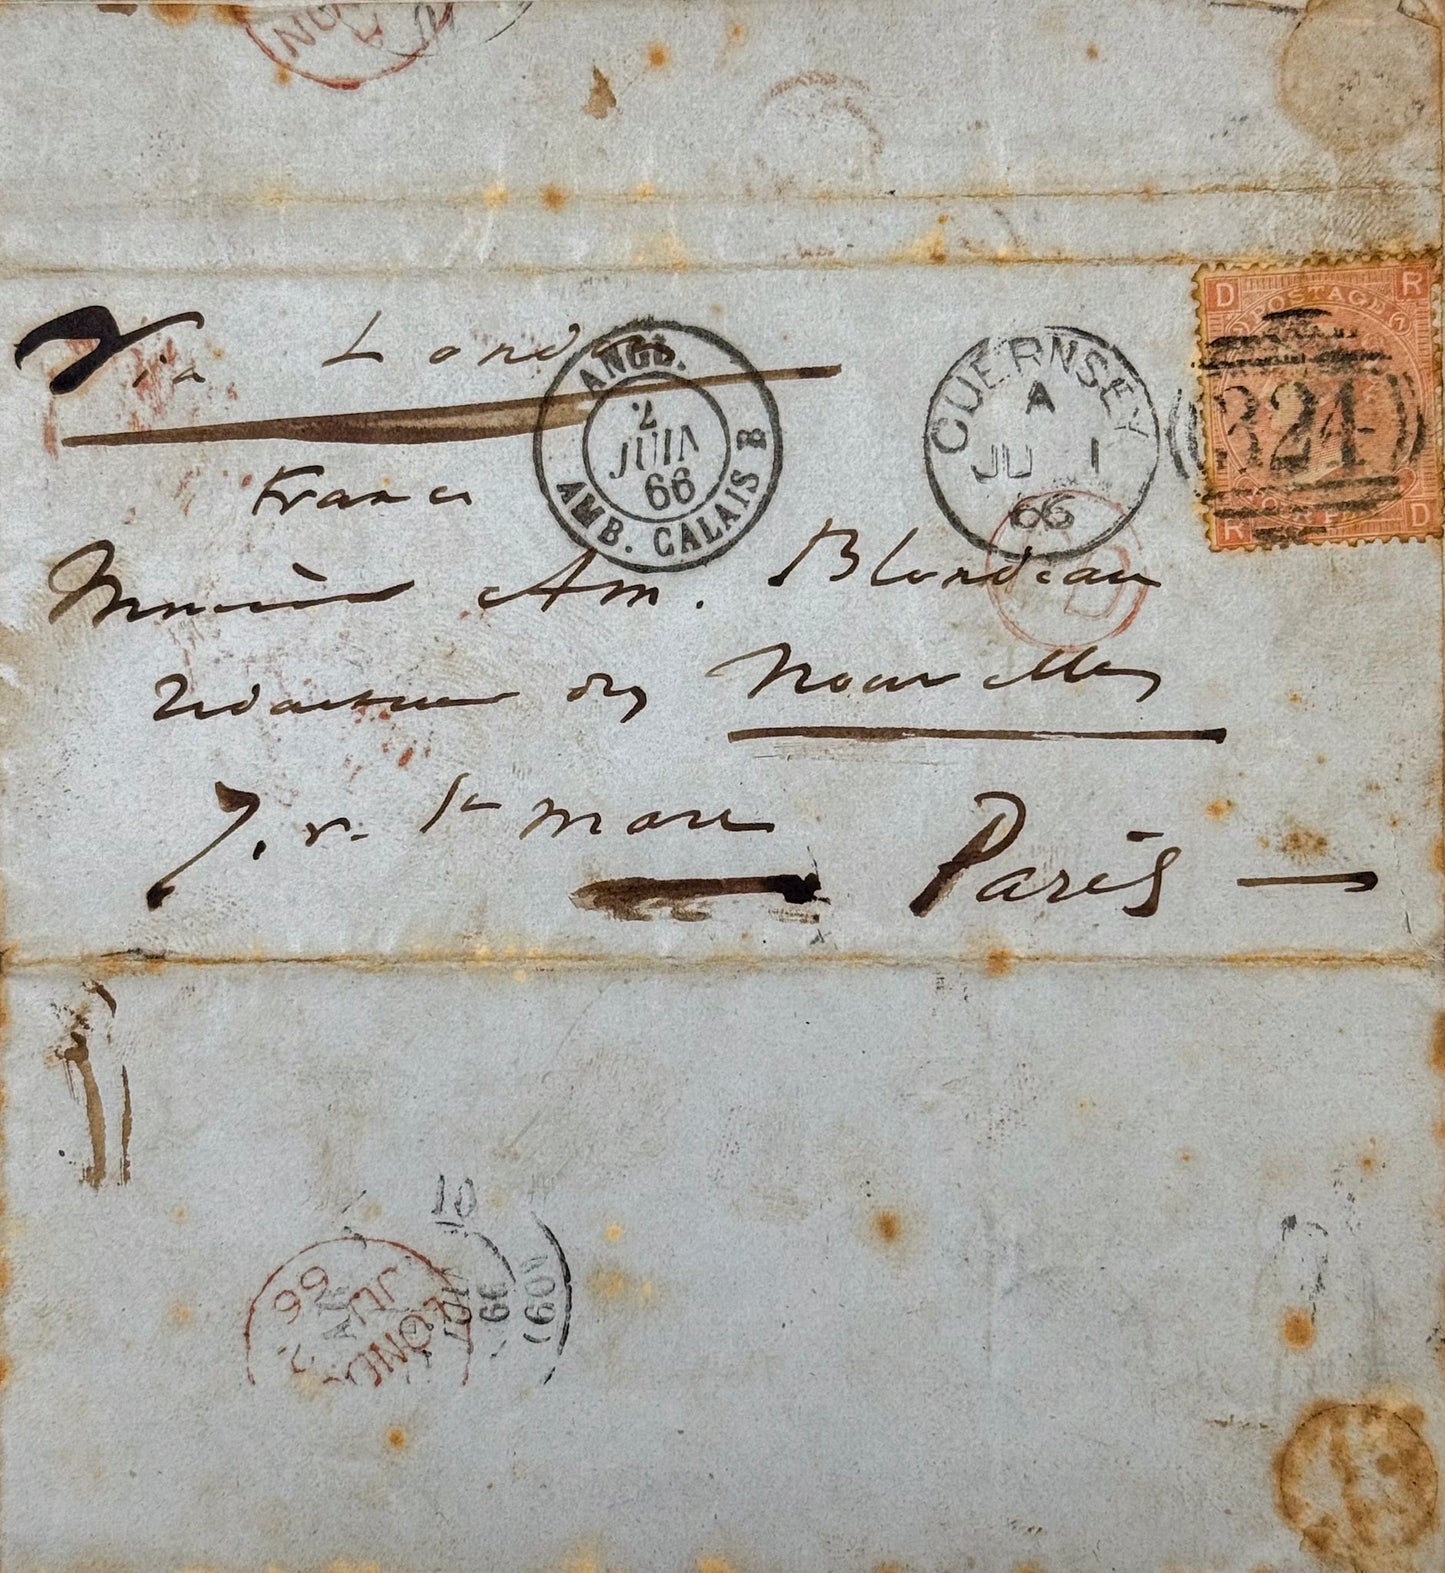 LON
Via Londres
ANGL.
2
JUIN
66
AMB. CALAIS B
GUERNSEY
A
JU 1
66
D R
POSTAGE
324
R D
France
PD
Monsieur Am. Blondeau
rédacteur des Nouvelles
7. r. St marc
Paris
10
66
JU
LOND
66
(60)